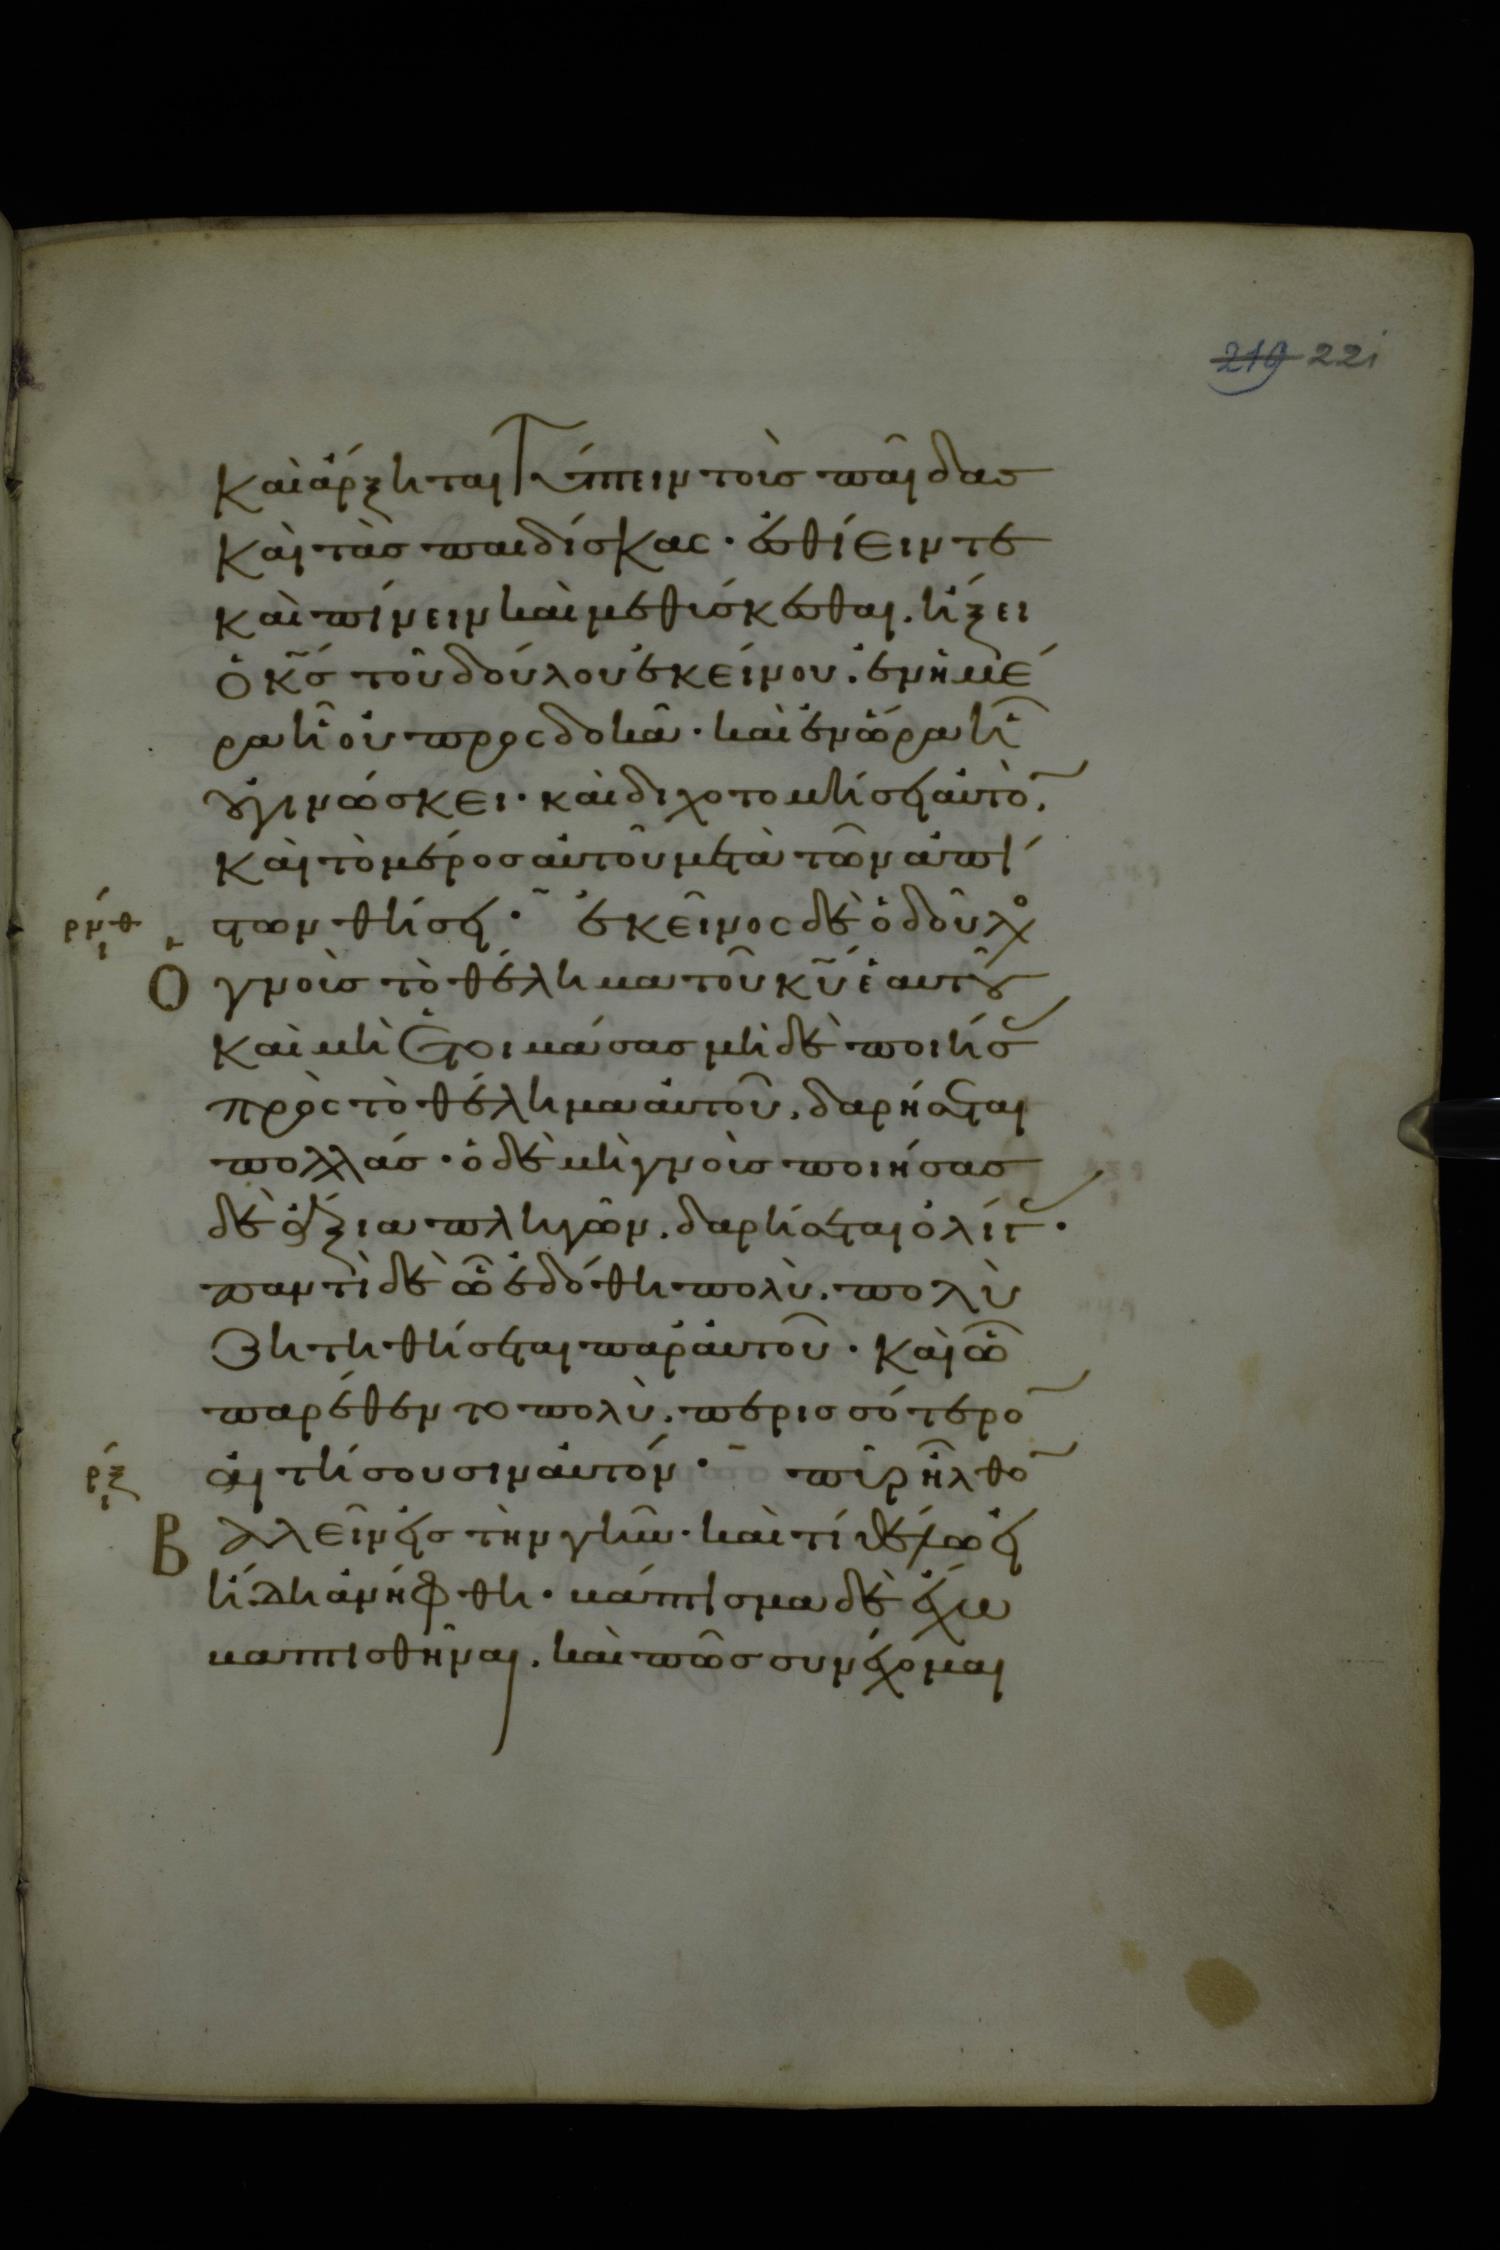 219 221
καὶ ἄρξηται τύπτειν τοὺς παῖδας
καὶ τὰς παιδίσκας · ἐσθίειν τε
καὶ πίνειν καὶ μεθύσκεσθαι . ἥξει
ὁ κ̅ς̅ τοῦ δούλου ἐκείνου . ἐν ἡμέ
ρα ἧ οὐ προσδοκᾶ · καὶ ἐν ὥρα ἧ
οὐ γινώσκει · καὶ διχοτομήσει αὐτὸ̅ .
καὶ τὸ μέρος αὐτοῦ μετὰ τῶν ἀπί
ρ̅μ̅θ̅ ι στων θήσει · ἐκεῖνος δὲ ὁ δοῦλο
Ὁ γνοὺς τὸ θέλημα τοῦ κ̅υ̅ ἑαυτοῦ
καὶ μὴ ἑτοιμάσας μηδὲ ποιήσ
πρὸς τὸ θέλημα αὐτοῦ . δαρήσεται
πολλάς · ὁ δὲ μὴ γνοὺς ποιήσας
δὲ ἄξια πληγῶν . δαρήσεται ὀλίγ ·
παντὶ δὲ ὧ ἐδόθη πολὺ . πολὺ
ζητηθήσεται παρ' αὐτοῦ · καὶ ὧ
παρέθεντο πολὺ . περισσότερο̅
ρ̅ξ̅ ι αἰτήσουσιν αὐτόν · πῦρ ἦλθο̅
Β αλεῖν εἰς τὴν γῆν · καὶ τί θέλω εἰ
ἤδη ἀνήφθη · βάπτισμα δὲ ἔχω
βαπτισθῆναι . καὶ πῶς συνέχομαι